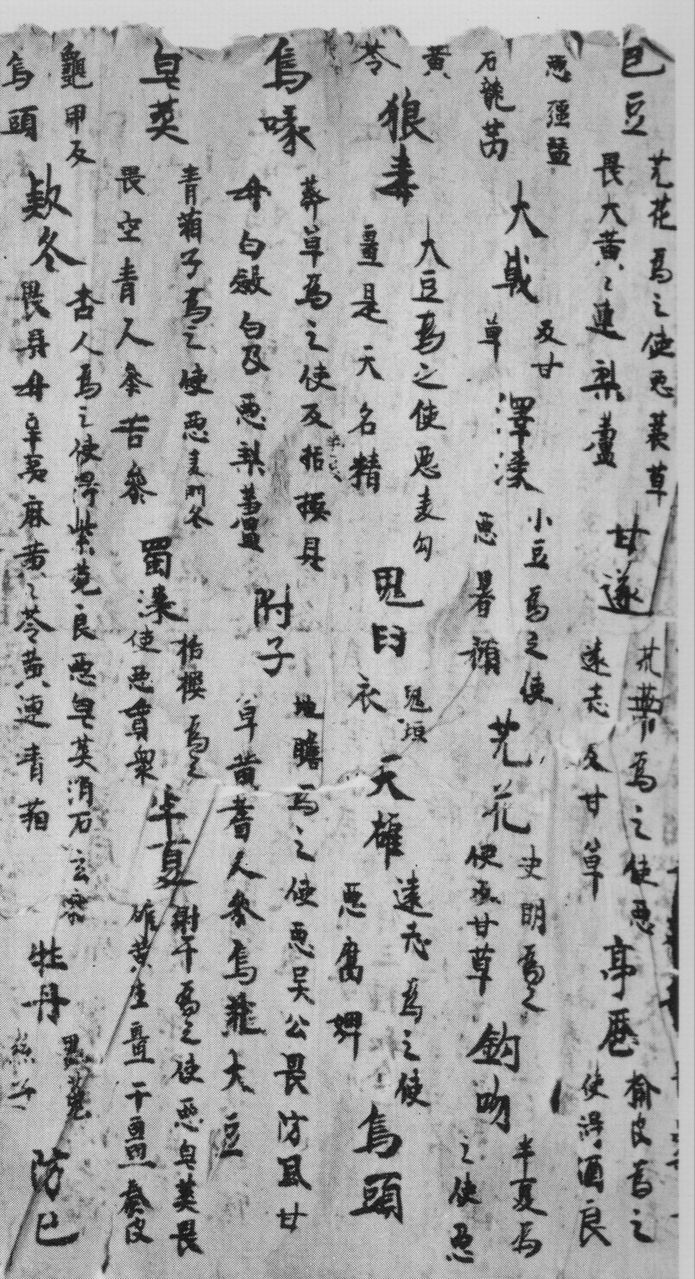 巴豆 芫花為之使惡蘘草 畏大黃〻連梨蘆 甘遂 苽蔕為之使惡 遠志反甘草 亭歷 榆皮為之 使得酒良
惡殭蠶 石龍芮 大戟 反甘 草 澤漆 小豆為之使 惡署預 芫花 史明為之 使反甘草 鈎吻 半夏為 之使惡
黃 芩 狼毒 大豆為之使惡麦勾 畺是天名精 鬼臼 鬼垣 衣 天雄 遠志為之使 惡腐婢 烏頭
烏喙 莽草為之使反栝樓貝 母白蘞白及惡梨蘆 附子 地膽為之使惡吴公畏防風甘 草黃耆人參烏韮大豆
皂莢 青葙子為之使惡麦門冬 畏空青人參苦參 蜀漆 栝樓為之 使惡貫衆 半夏 射干為之使惡皂莢畏 雄黃生畺干畺秦皮
龜甲反 烏頭 款冬 杏人為之使得紫菀良惡皂莢消石玄參 畏貝母辛夷麻黃〻芩黃連青葙 牡丹 畏菟 絲子 防已